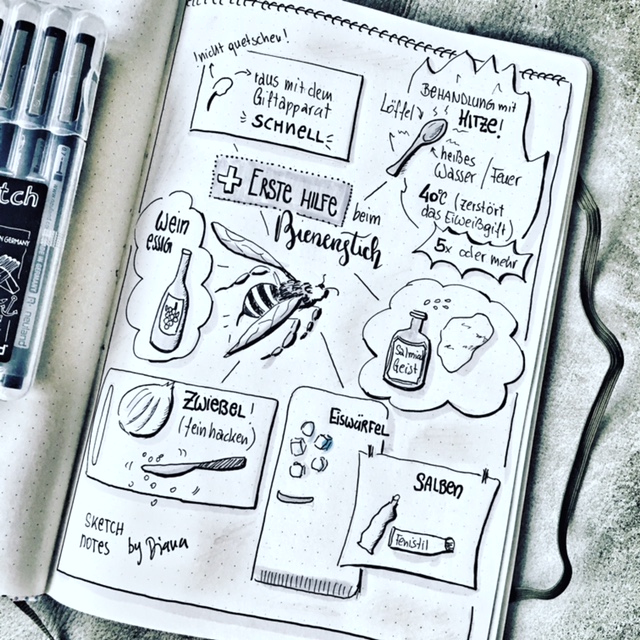 !nicht quetschen!
raus mit dem
Giftapparat
SCHNELL
BEHANDLUNG mit
HITZE!
Löffel
heißes
Wasser / Feuer
40°C (zerstört
das Eiweißgift)
5x oder mehr
ERSTE HILFE
beim
Bienenstich
Wein
essig
Salmiak
Geist
ZWIEBEL!
(fein hacken)
EISWÜRFEL
SALBEN
Fenistil
SKETCH
NOTES by Diana
tch
IN GERMANY
neuland